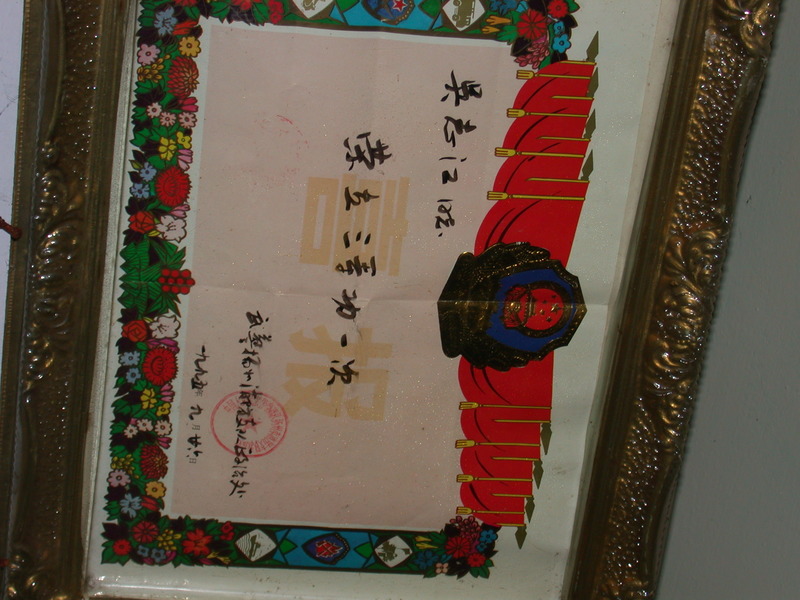 喜报
吴志江 同志:
荣立三等功一次
武警扬州消防支队政治处
一九九五年九月廿六日